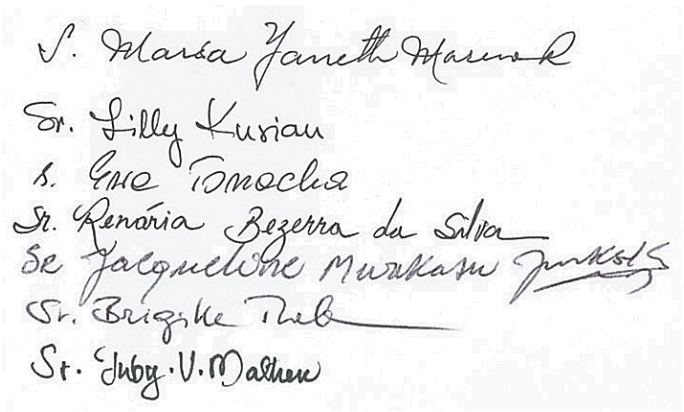 S. Maria Yaneth Moreno R
Sr. Lilly Kurian
s. Ewa Tonacka
Sr. Renária Bezerra da Silva
Sr Jacqueline Mwakasu
Sr. Brigitte Thele
Sr. Juby.V.Mathew